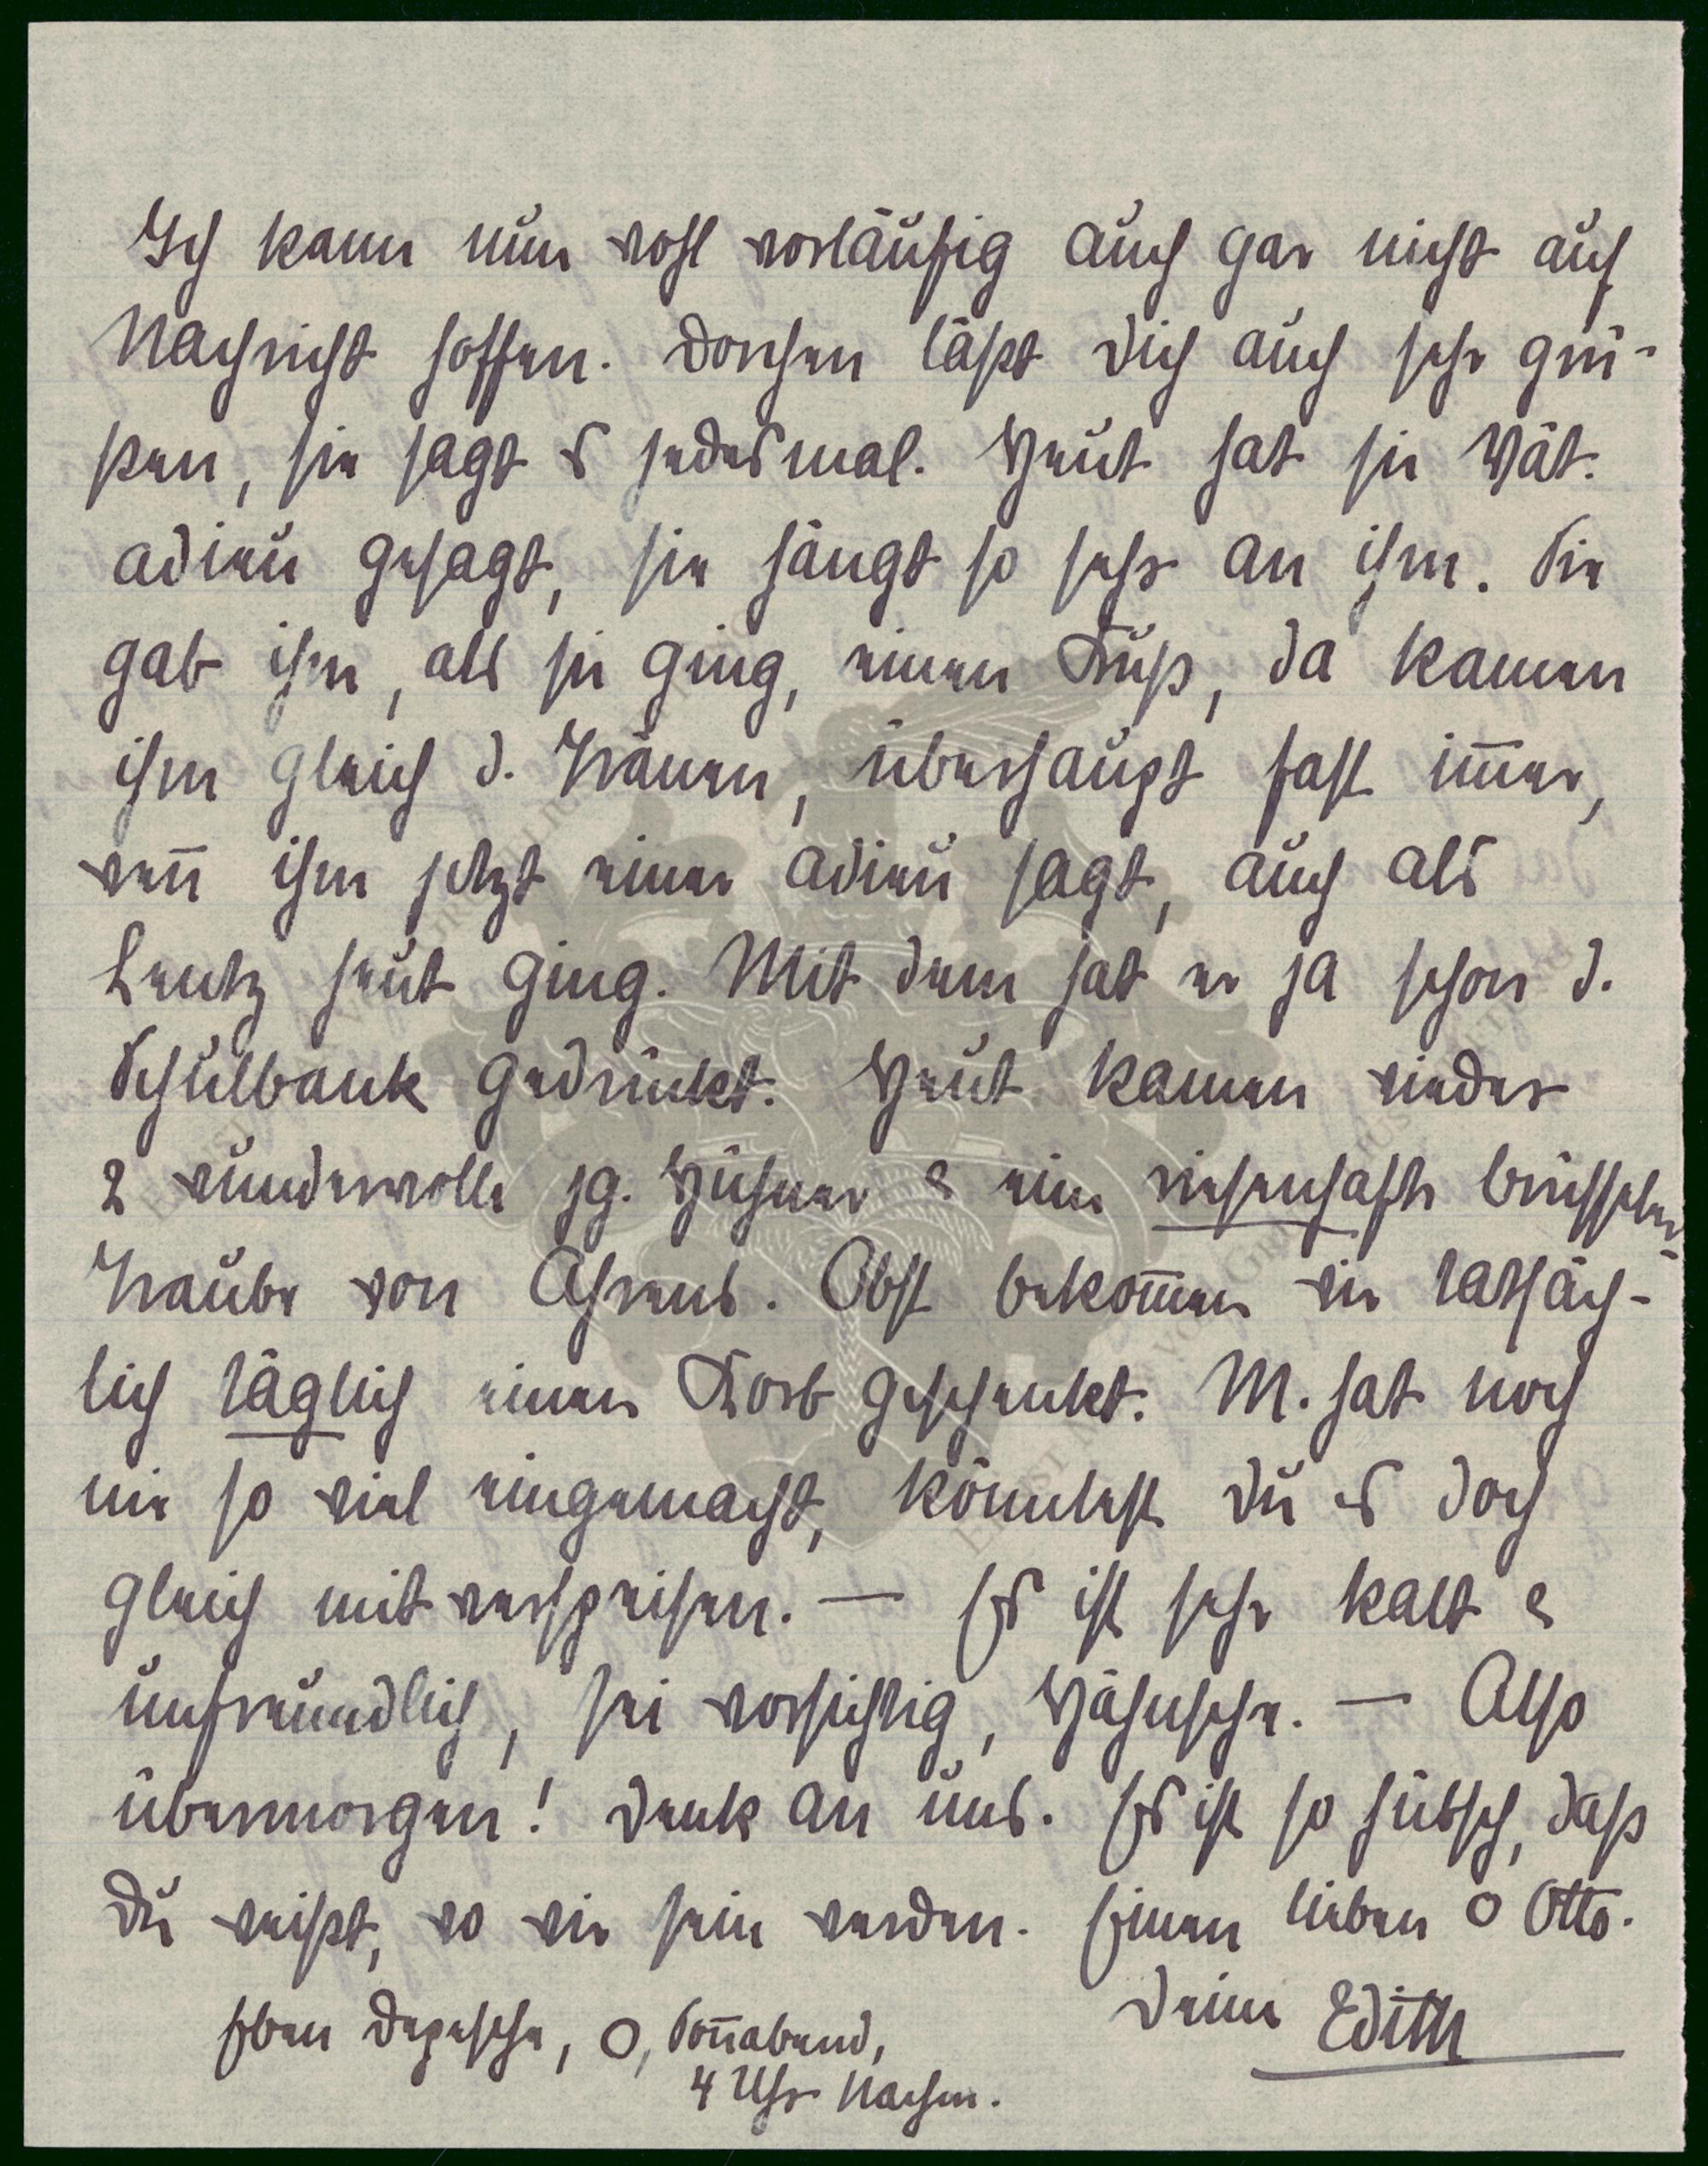 Ich kann nun wohl vorläufig auch gar nicht auf
Nachricht hoffen. Dorchen läßt Dich auch sehr grü-
ßen, sie sagt es jedesmal. Heut hat sie Vät.
adieu gesagt, sie hängt so sehr an ihm. Sie
gab ihm, als sie ging, einen Kuß, da kamen
ihm gleich d. Tränen, überhaupt fast im̅er,
wen̅ ihm jetzt einer adieu sagt, auch als
Lentz heut ging. Mit dem hat er ja schon d.
Schulbank gedrückt. Heut kamen wieder
2 wundervolle jg. Hühner & eine riesenhafte Brüsseler
Traube von Ahrens. Obst bekom̅en wir tatsäch-
lich täglich einen Korb geschenkt. M. hat noch
nie so viel eingemacht, könntest Du es doch
gleich mit verspeisen. — Es ist sehr kalt &
unfreundlich, sei vorsichtig, Hähnsche. — Also
übermorgen! Denk an uns. Es ist so hübsch, daß
Du weißt, wo wir sein werden. Einen lieben O Otto.
Deine Edith
Eben Depesche, O, Son̅abend,
4 Uhr Nachm.